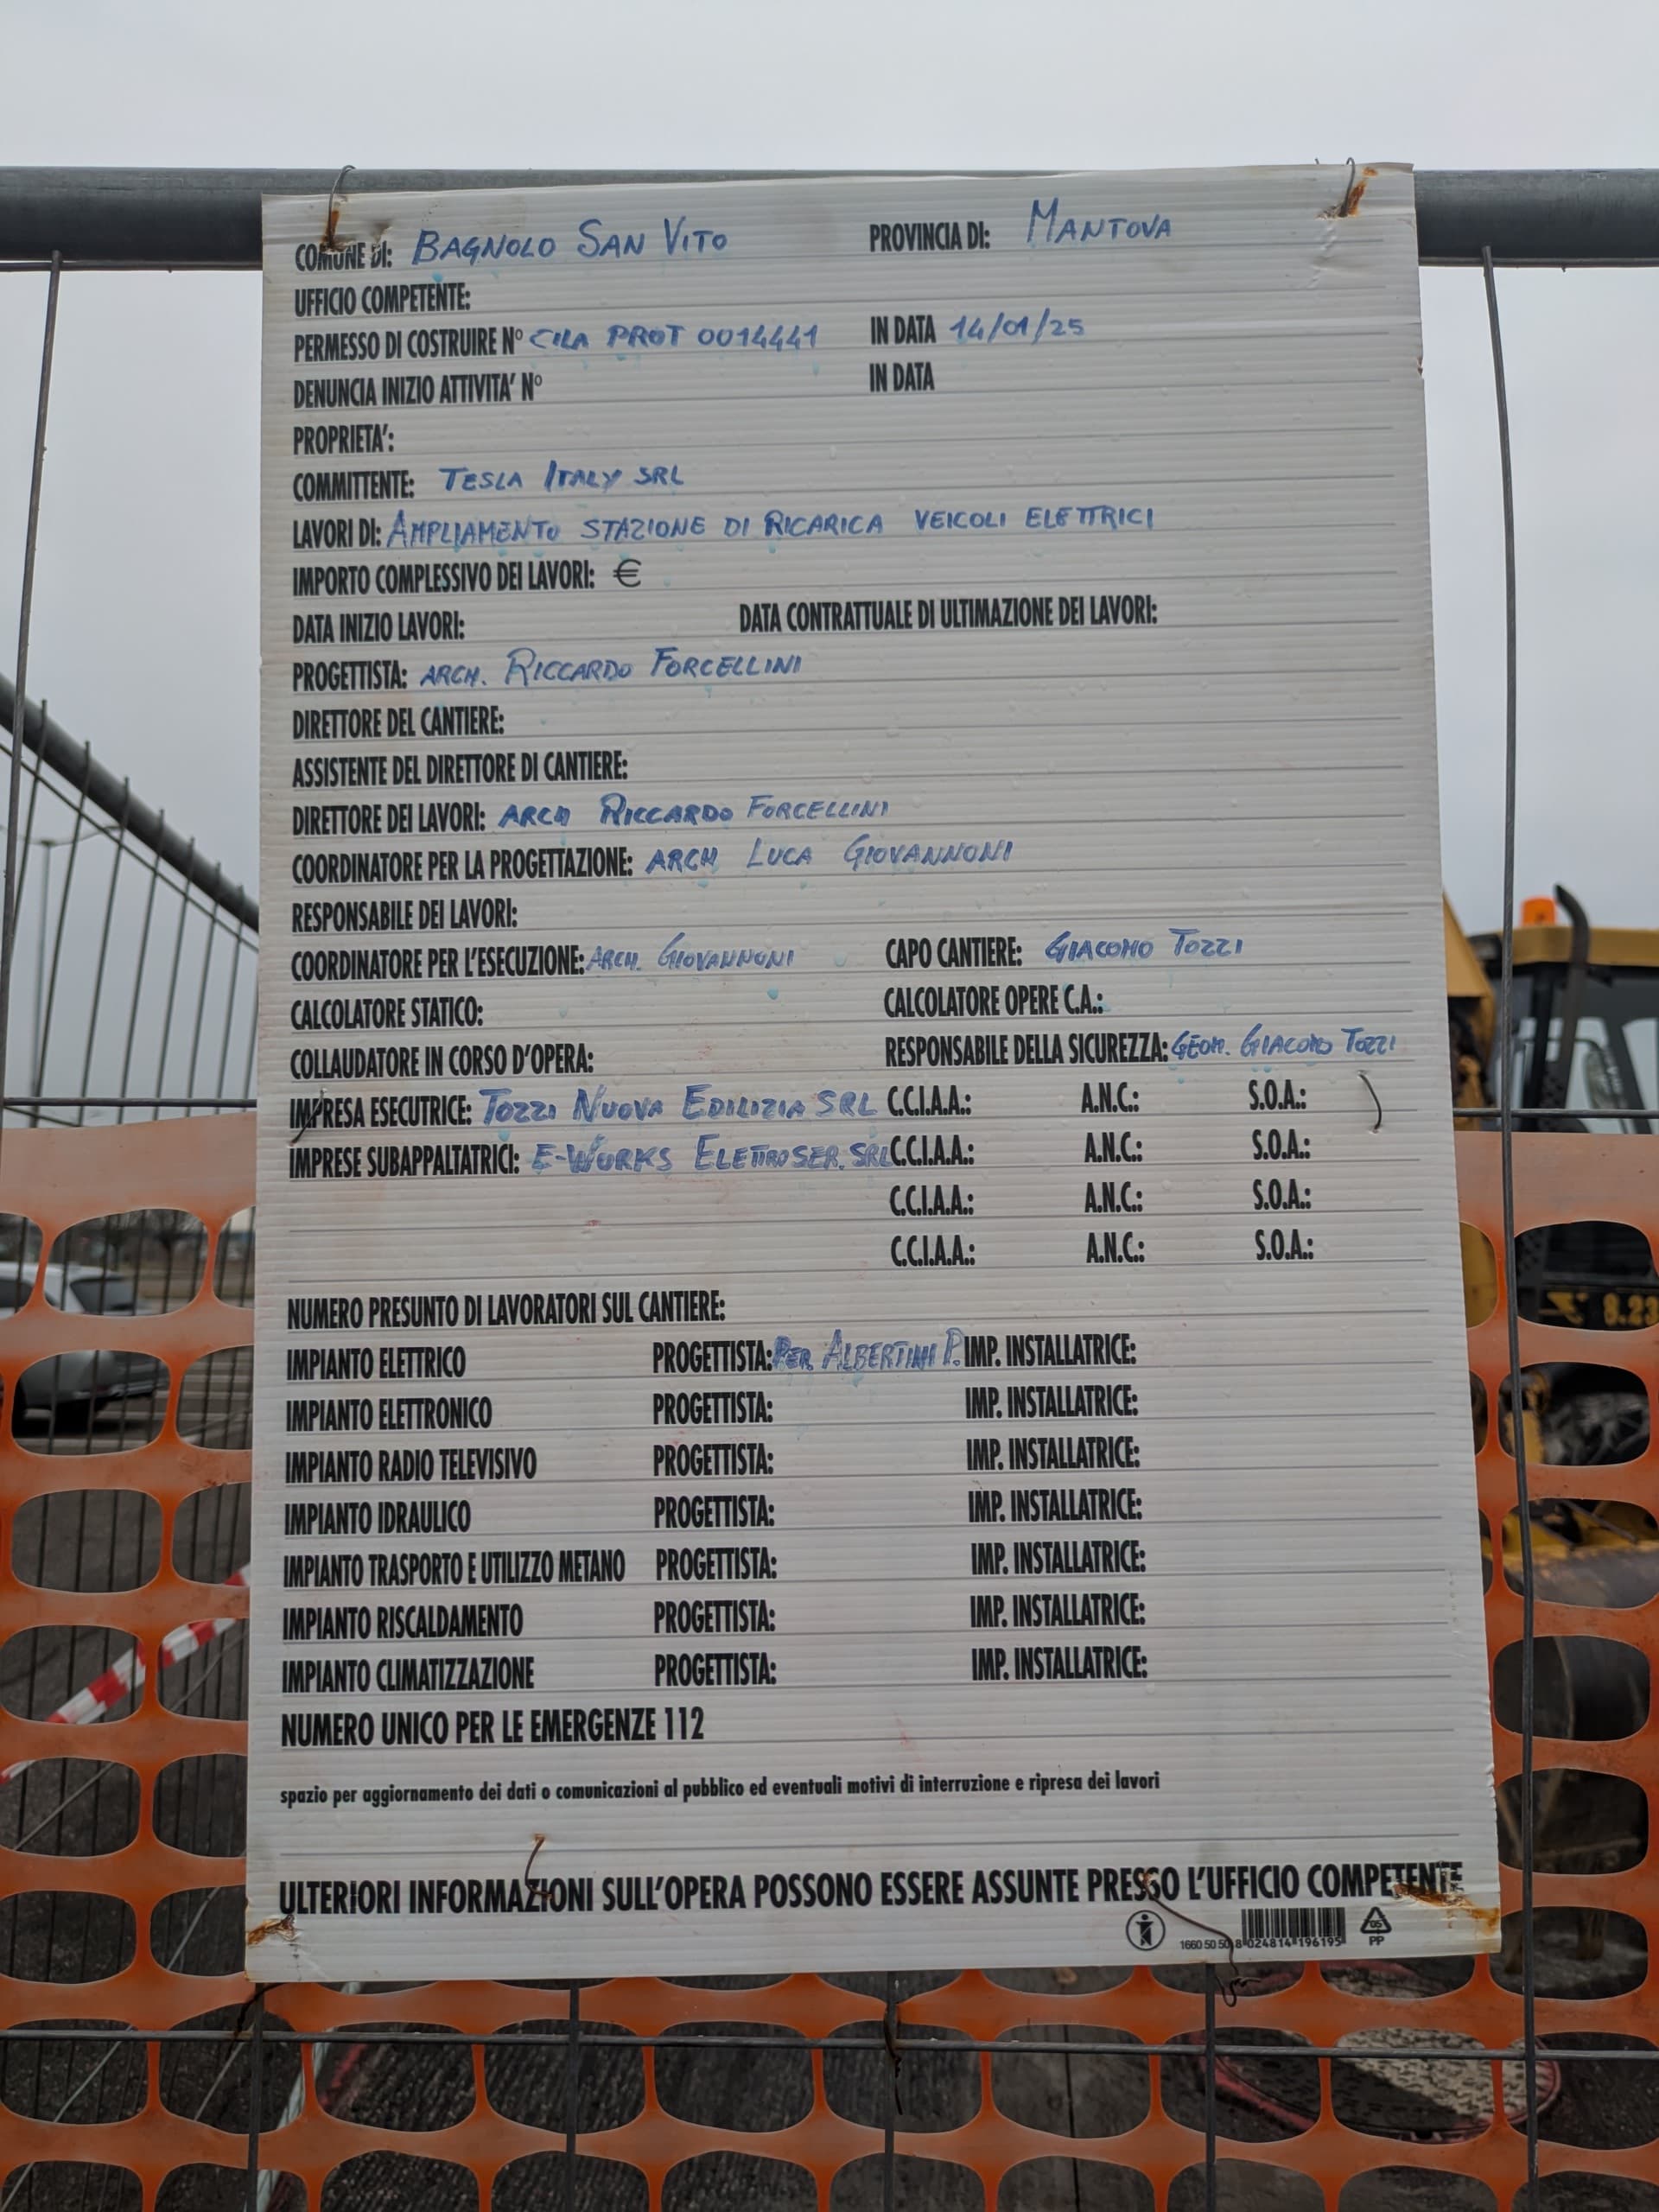 COMUNE DI: BAGNOLO SAN VITO PROVINCIA DI: MANTOVA
UFFICIO COMPETENTE:
PERMESSO DI COSTRUIRE N° CILA PROT 0014441 IN DATA 14/01/25
DENUNCIA INIZIO ATTIVITA' N° IN DATA
PROPRIETA':
COMMITTENTE: TESLA ITALY SRL
LAVORI DI: AMPLIAMENTO STAZIONE DI RICARICA VEICOLI ELETTRICI
IMPORTO COMPLESSIVO DEI LAVORI: €
DATA INIZIO LAVORI: DATA CONTRATTUALE DI ULTIMAZIONE DEI LAVORI:
PROGETTISTA: ARCH. RICCARDO FORCELLINI
DIRETTORE DEL CANTIERE:
ASSISTENTE DEL DIRETTORE DI CANTIERE:
DIRETTORE DEI LAVORI: ARCH RICCARDO FORCELLINI
COORDINATORE PER LA PROGETTAZIONE: ARCH LUCA GIOVANNONI
RESPONSABILE DEI LAVORI:
COORDINATORE PER L'ESECUZIONE: ARCH. GIOVANNONI CAPO CANTIERE: GIACOMO TOZZI
CALCOLATORE STATICO: CALCOLATORE OPERE C.A.:
COLLAUDATORE IN CORSO D'OPERA: RESPONSABILE DELLA SICUREZZA: GEOM. GIACOMO TOZZI
IMPRESA ESECUTRICE: TOZZI NUOVA EDILIZIA SRL C.C.I.A.A.: A.N.C.: S.O.A.:
IMPRESE SUBAPPALTATRICI: E-WORKS ELETTROSER. SRL C.C.I.A.A.: A.N.C.: S.O.A.:
C.C.I.A.A.: A.N.C.: S.O.A.:
C.C.I.A.A.: A.N.C.: S.O.A.:
NUMERO PRESUNTO DI LAVORATORI SUL CANTIERE:
IMPIANTO ELETTRICO PROGETTISTA: PER. ALBERTINI P. IMP. INSTALLATRICE:
IMPIANTO ELETTRONICO PROGETTISTA: IMP. INSTALLATRICE:
IMPIANTO RADIO TELEVISIVO PROGETTISTA: IMP. INSTALLATRICE:
IMPIANTO IDRAULICO PROGETTISTA: IMP. INSTALLATRICE:
IMPIANTO TRASPORTO E UTILIZZO METANO PROGETTISTA: IMP. INSTALLATRICE:
IMPIANTO RISCALDAMENTO PROGETTISTA: IMP. INSTALLATRICE:
IMPIANTO CLIMATIZZAZIONE PROGETTISTA: IMP. INSTALLATRICE:
NUMERO UNICO PER LE EMERGENZE 112
spazio per aggiornamento dei dati o comunicazioni al pubblico ed eventuali motivi di interruzione e ripresa dei lavori
ULTERIORI INFORMAZIONI SULL'OPERA POSSONO ESSERE ASSUNTE PRESSO L'UFFICIO COMPETENTE
1660 50 50 8 024814 196195 05 PP
8.23